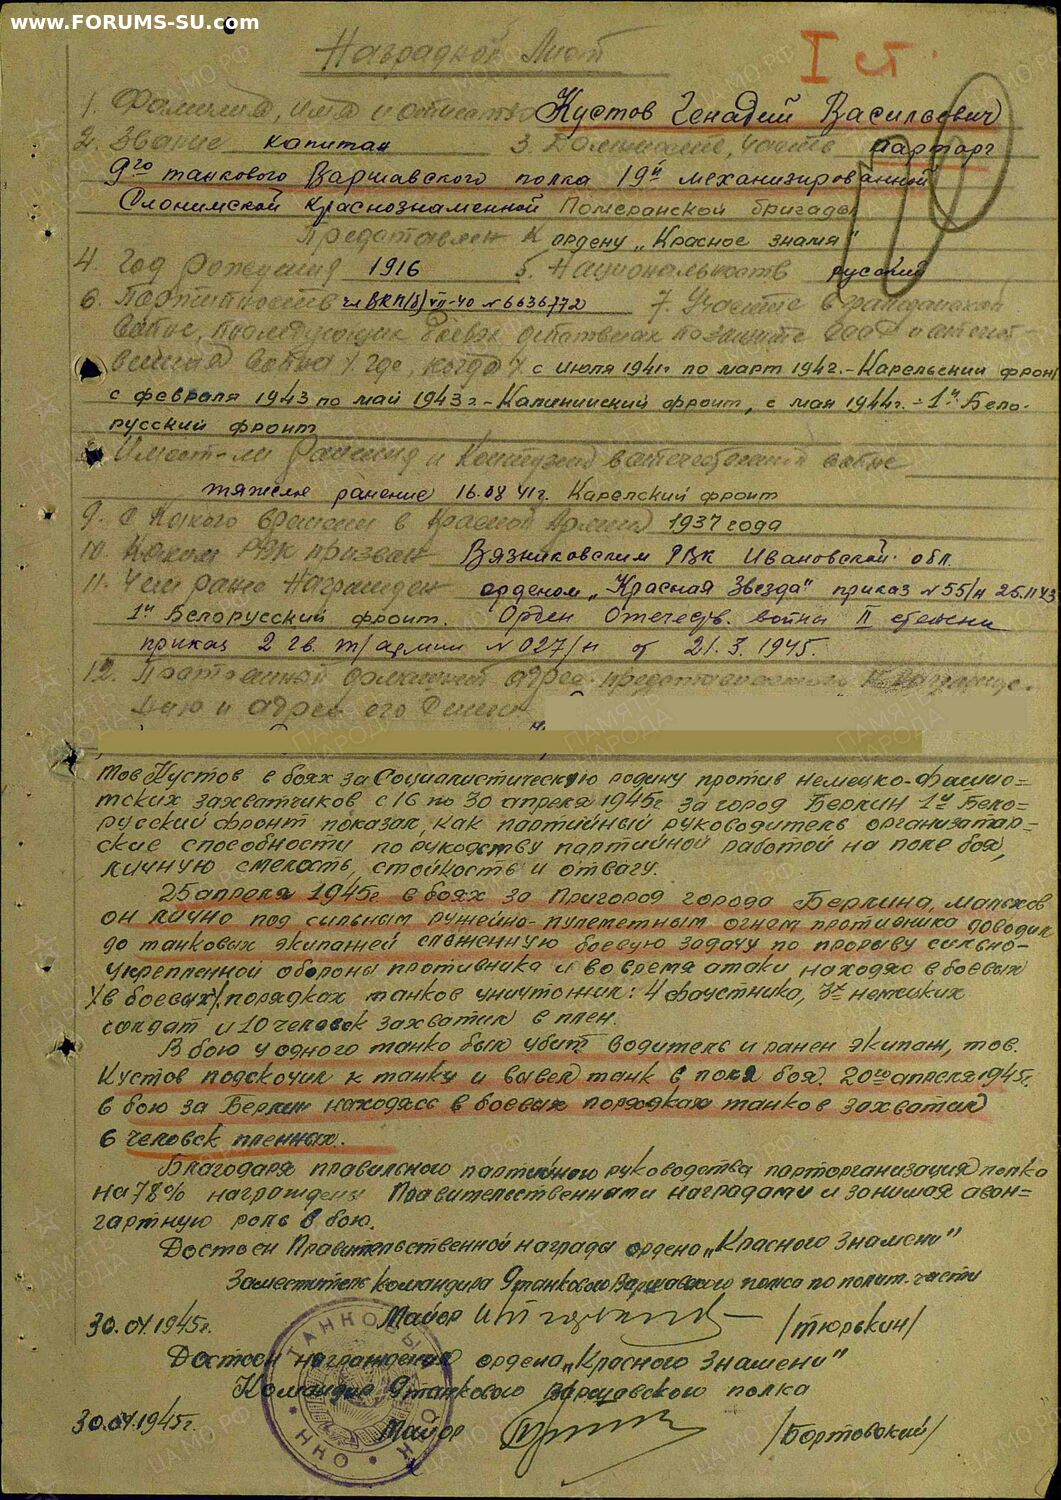 www.FORUMS-SU.com
Наградной Лист
I ст.
1. Фамилия, имя и отчество Кустов Генадий Василевич
2. Звание капитан 3. Должность, часть парторг
9го танкового Варшавского полка 19й механизированной
Слонимской Краснознаменной Померанской бригады
Представлен к ордену „Красное знамя"
4. Год рождения 1916 5. Национальность русский
6. Партийность чл ВКП(б) VII-40 № 6636772 7. Участие в гражданской
войне, последующих боевых действиях по защите СССР и отечест-
венной войне /где, когда/ с июля 1941г по март 1942г.-Карельский фронт
с февраля 1943 по май 1943г-Калининский фронт, с мая 1944г.-1й Бело-
русский фронт
8. Имеет-ли ранения и контузии в отечественной войне
тяжелое ранение 16.08 41г. Карелский фронт
9. С какого времени в Красной Армии 1937 года
10. Каким РВК призван Вязниковским РВК Ивановской обл.
11. Чем ранее награжден орденом „Красная Звезда" приказ № 55/н
1й Белорусский фронт. Орден Отечеств. войны II степени
приказ 2 гв. т/армии № 027/н от 21.3.1945.
12. Постоянный домашний адрес представляемого к награжде-
нию и адрес его семьи
тов Кустов в боях за Социалистическую родину против немецко-фашис=
тских захватчиков с 16 по 30 апреля 1945г за город Берлин 1й Бело-
русский фронт показал, как партийный руководитель организатар-
ские способности по рукодству партийной работой на поле боя,
личную смелость, стойкость и отвагу.
25 апреля 1945г в боях за пригород города Берлина,
он лично под сильным ружейно-пулеметным огнем противника доводил
до танковых экипажей слаженную боевую задачу по прорыву сильно-
укрепленной обороны противника и во время атаки, находяс в боевых
/в боевых/ порядках танков уничтожил: 4 фаустника, 3х немецких
солдат и 10 человек захватил в плен.
В бою у одного танка был убит водитель и ранен экипаж, тов.
Кустов подскочил к танку и вывел танк с поля боя. 20го апреля 1945г.
в бою за Берлин находясь в боевых порядках танков захватил
6 человек пленных.
Благодаря правильного партийного руководства парторганизация полка
на 78% награждены Правительственными наградами и занимая аван=
гартную роль в бою.
Достоен Правительственной награды ордена „Красного Знамени"
Заместитель командира 9 танкового Варшавского полка по полит. части
30.04.1945г. Майор /Тюрькин/
Достоен награждения ордена „Красного Знамени"
Командир 9 танкового Варшавского полка
30.04.1945г. Майор /Бортовский/